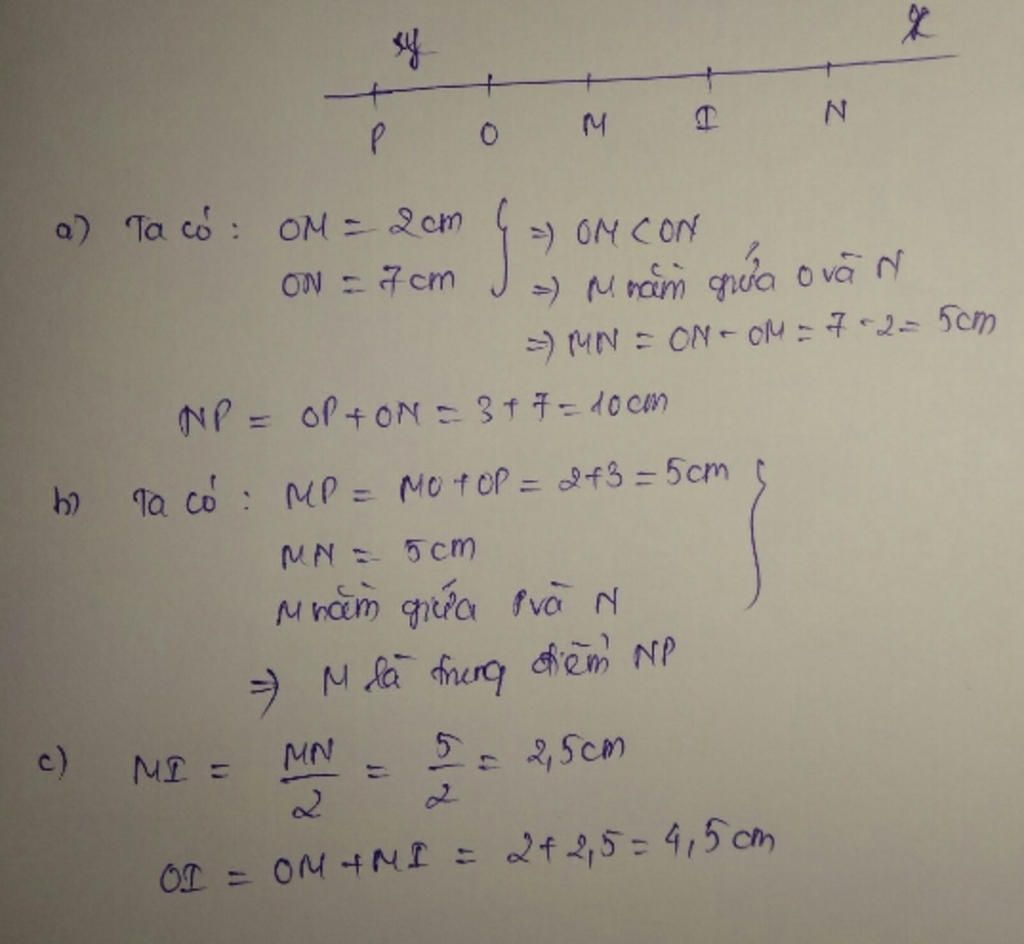 xy x
P O M I N
a) Ta có : OM = 2cm } ⇒ OM < ON
ON = 7cm ⇒ M nằm giữa O và N
⇒ MN = ON - OM = 7 - 2 = 5cm
NP = OP + ON = 3 + 7 = 10cm
b) Ta có : MP = MO + OP = 2+3 = 5cm }
MN = 5cm
M nằm giữa P và N
⇒ M là trung điểm NP
c) MI = MN/2 = 5/2 = 2,5cm
OI = OM + MI = 2 + 2,5 = 4,5cm